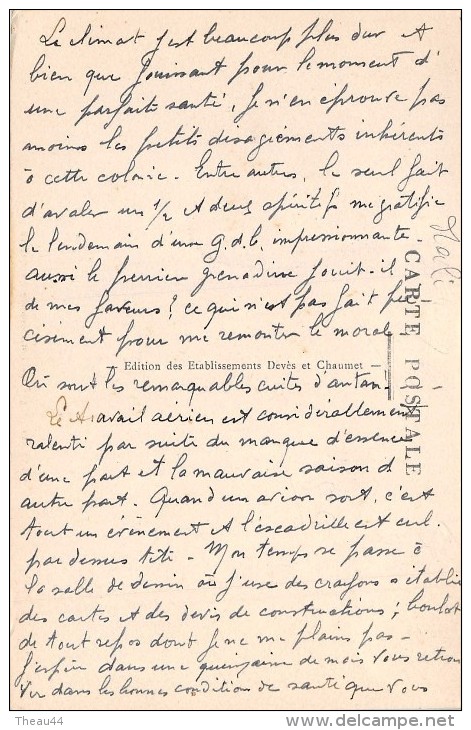 Le climat y est beaucoup plus dur et
bien que jouissant pour le moment d'
une parfaite santé, je n'en éprouve pas
moins les petits désagréments inhérents
à cette colonie. Entre autres, le seul fait
d'avaler un 1/2 et deux apéritifs me gratifie
le lendemain d'une g.d.b. impressionnante
aussi le perrier grenadine jouit-il
de mes faveurs! ce qui n'est pas fait pré-
cisément pour me remonter le moral
Edition des Etablissements Devès et Chaumet
Où sont les remarquables cuites d'antan.
Le travail aérien est considérablement
ralenti par suite du manque d'essence
d'une part et la mauvaise saison d'
autre part. Quand un avion sort, c'est
tout un événement et l'escadrille est cul
par dessus tête - Mon temps se passe à
la salle de dessin où j'use des crayons à établir
des cartes et des devis de constructions; boulot
de tout repos dont je ne me plains pas -
J'espère dans une quinzaine de mois vous retrou
ver dans les bonnes conditions de santé que vous
Mali
CARTE POSTALE
Theau44